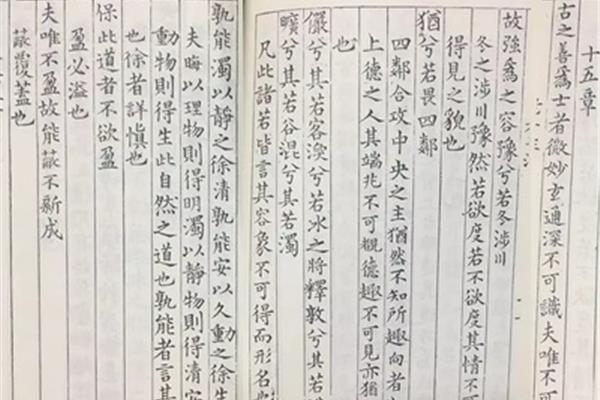 十五章
古之善爲士者微妙玄通深不可識夫唯不可
故強爲之容豫兮若冬涉川
冬之涉川豫然若欲度若不欲度其情不可
得見之貌也
猶兮若畏四鄰
四鄰合攻中央之主猶然不知所趣向者
上德之人其端兆不可覩德趣不可見亦猶
也
儼兮其若客渙兮若冰之將釋敦兮其若
曠兮其若谷混兮其若濁
凡此諸若皆言其容象不可得而形名也
孰能濁以靜之徐清孰能安以久動之徐生
夫晦以理物則得明濁以靜物則得清安
動物則得生此自然之道也孰能者言其
也徐者詳慎也
保此道者不欲盈
盈必溢也
夫唯不盈故能蔽不新成
蔽覆蓋也